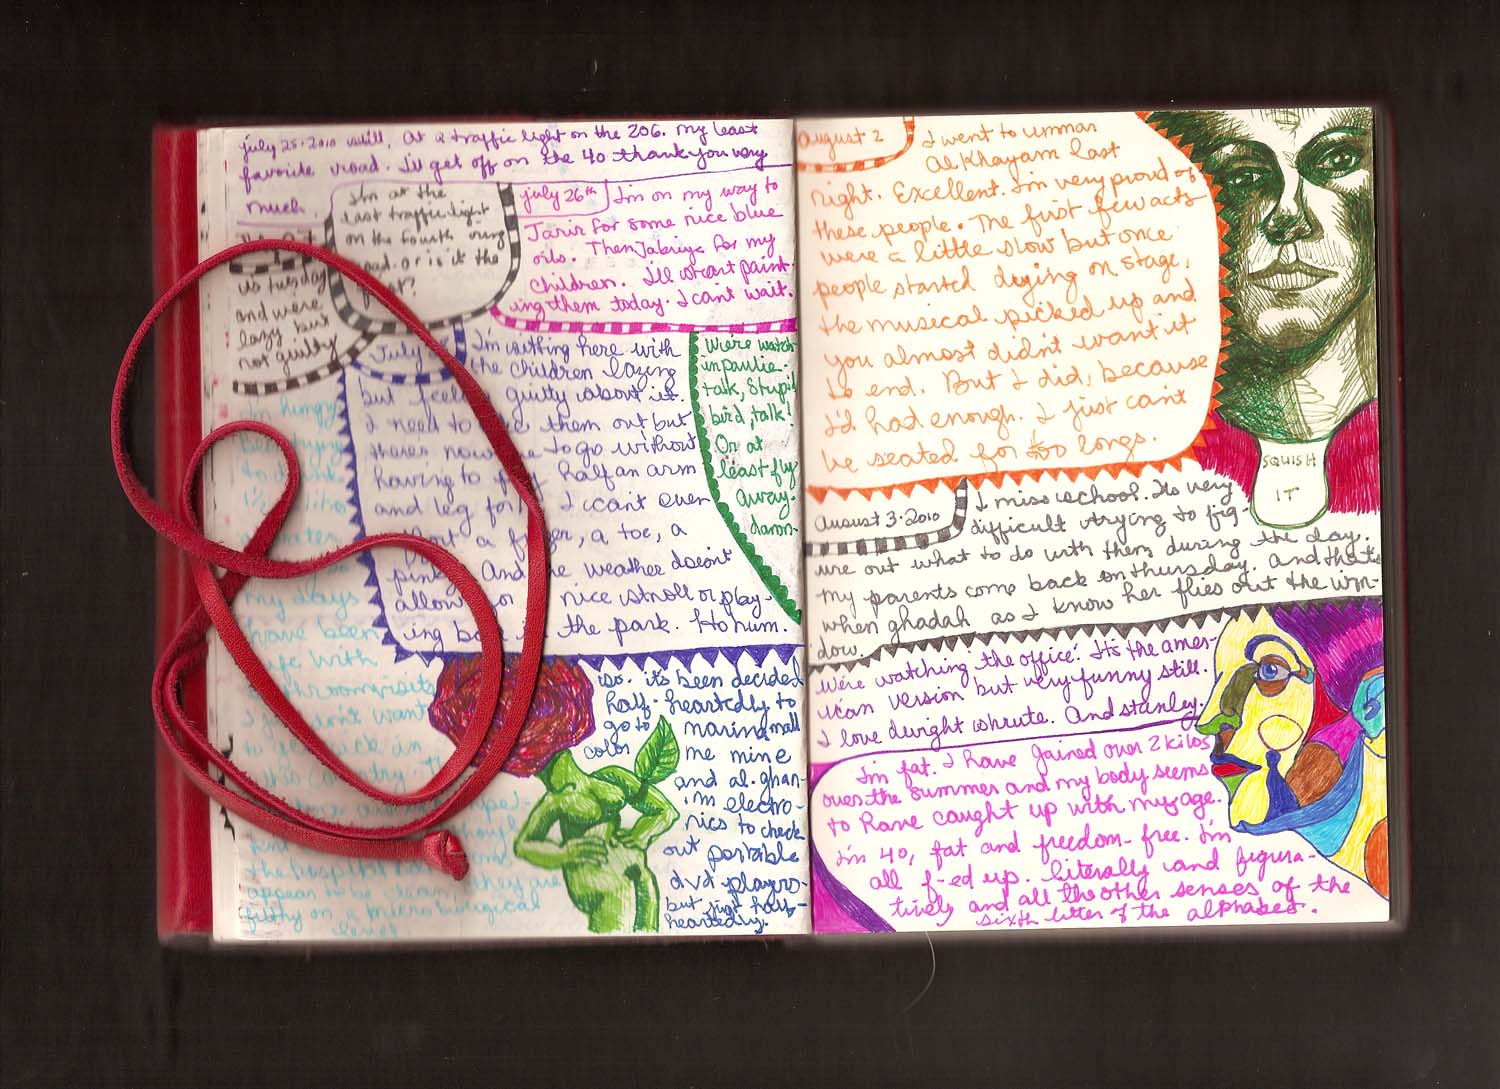 july 25.2010 still. At a traffic light on the 206. my least
favorite road. I'll get off on the 40 thank you very
much.
I'm at the
last traffic light
on the fourth ring
road. or is it the
first?
july 26th
I'm on my way to
Jarir for some nice blue
oils. Then Jabriya for my
children. I'll start paint-
ing them today. I can't wait.
its tuesday
and we're
lazy but
not guilty
July
I'm sitting here with
the children lazing
but feel guilty about it.
I need to them out but
theres to go without
having to half an arm
and leg for I can't even
a a toe, a
And the weather doesn't
allow nice stroll or play-
ing the park. Ho hum.
We're watch-
in paulie.
talk, stupid
bird, talk!
Or at
least fly
away.
damn.
I'm hungry
Been trying
to drink
1½
water
my days
have been
life with
bathroom visits
I don't want
to
this country.
the hospital
appear to be clean, they're
filthy on a microbiological
level
so. it's been decided
half-heartedly to
go to marina mall
color me mine
and al.ghan-
im electro-
nics to check
out portable
dvd players-
but just half-
heartedly.
August 2
I went to ummar
Al Khayam last
night. Excellent. I'm very proud of
these people. The first few acts
were a little slow but once
people started dying on stage,
the musical picked up and
you almost didn't want it
to end. But I did, because
I'd had enough. I just can't
be seated for too long.
SQUISH
IT
August 3.2010
I miss school. Its very
difficult trying to fig-
ure out what to do with them during the day.
my parents come back on thursday. And that's
when ghadah as I know her flies out the win-
dow.
We're watching the office. It's the amer-
ican version but very funny still.
I love dwight shrute. And stanley.
I'm fat. I have gained over 2 kilos
over the summer and my body seems
to have caught up with my age.
I'm 40, fat and freedom-free. I'm
all f-ed up. literally and figura-
tively and all the other senses of the
sixth letter of the alphabet.